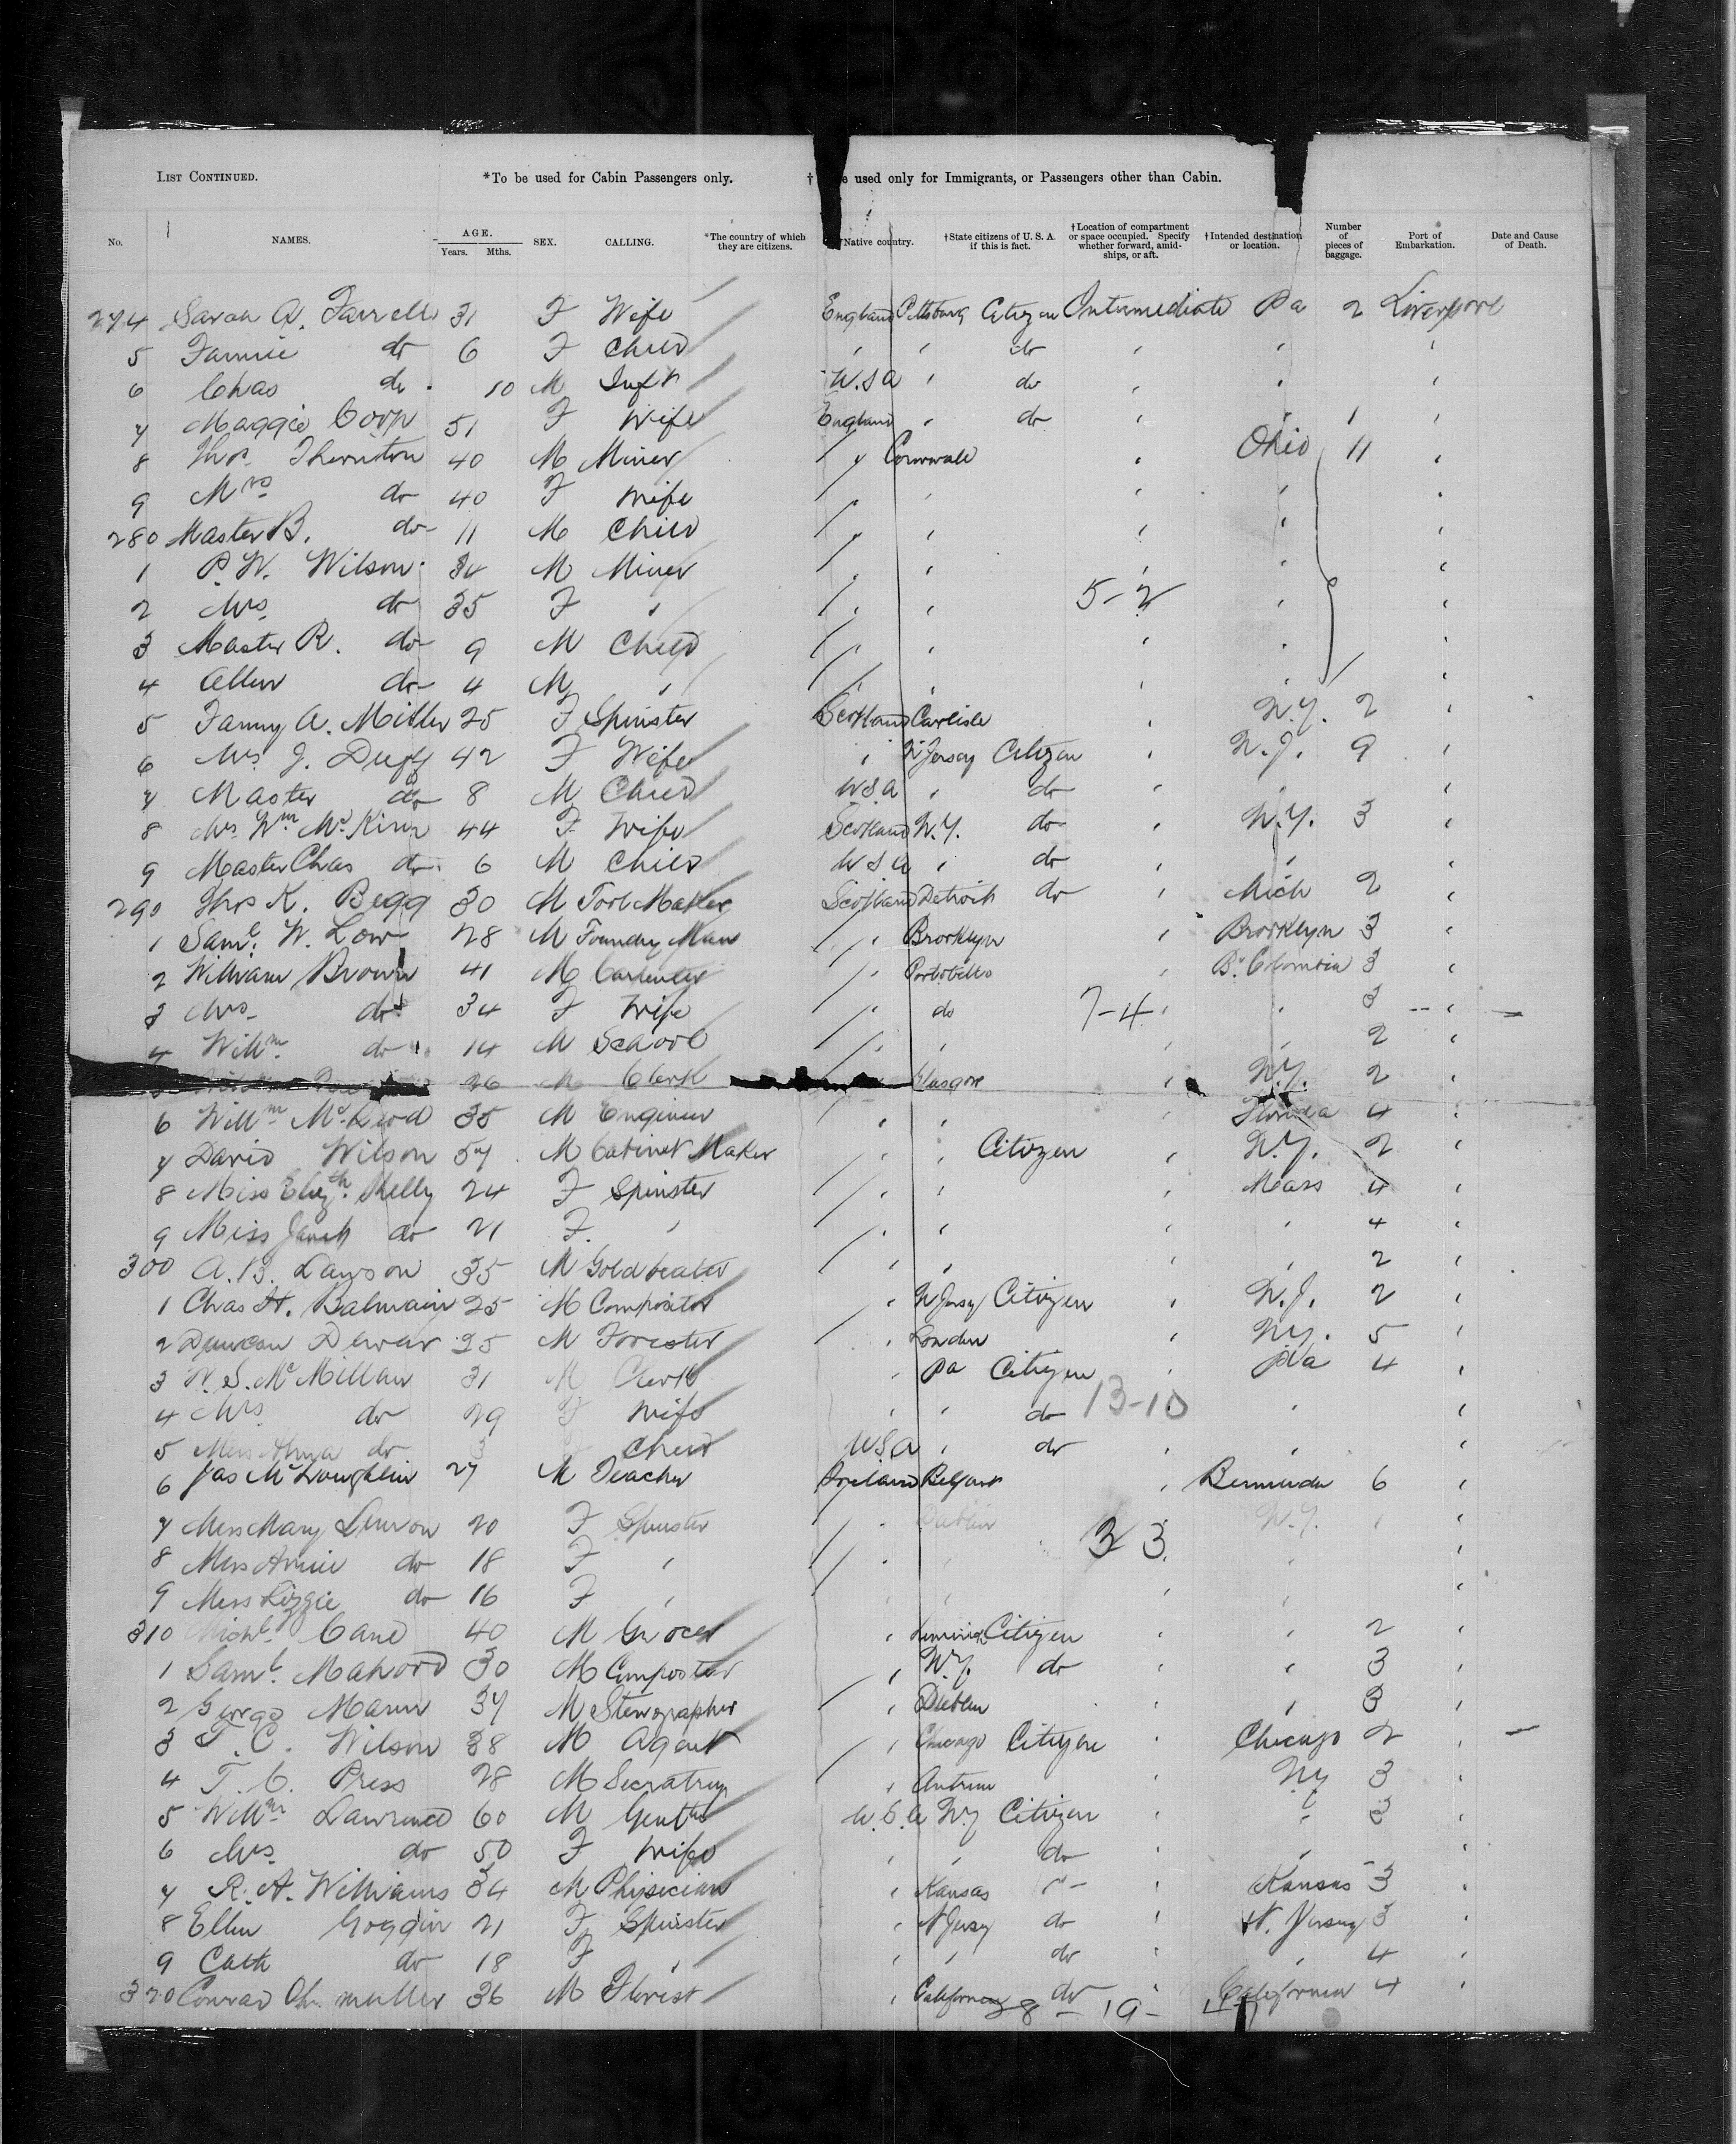 LIST CONTINUED. *To be used for Cabin Passengers only. † e used only for Immigrants, or Passengers other than Cabin.
No. NAMES. AGE. Years. Mths. SEX. CALLING. *The country of which they are citizens. Native country. †State citizens of U. S. A. if this is fact. †Location of compartment or space occupied. Specify whether forward, amid-ships, or aft. †Intended destination or location. Number of pieces of baggage. Port of Embarkation. Date and Cause of Death.
274 Sarah A. Farrell 31 F Wife England Pittsburg Citizen Intermediate Pa 2 Liverpool
5 Fannie do 6 F Child " " do " " "
6 Chas do 10 M Inft U.S.A " do " " "
7 Maggie Coop 51 F Wife England " do " " 1 "
8 Thos. Thornton 40 M Miner " Cornwall " Ohio 11 "
9 Mrs do 40 F Wife " " " " "
280 Master B. do 11 M Child " " " " "
1 P. W. Wilson 34 M Miner " " " " "
2 Mrs do 35 F " " " 5-2 " "
3 Master R. do 9 M Child " " " " "
4 Allen do 4 M " " " " "
5 Fanny A. Miller 25 F Spinster Scotland Carlisle " N.Y. 2 "
6 Mrs J. Duff 42 F Wife " N Jersey Citizen " N.J. 9 "
7 Master do 8 M Child U.S.A " do " " "
8 Mrs Wm McKim 44 F Wife Scotland N.Y. do " N.Y. 3 "
9 Master Chas do 6 M Child U S A " do " " "
290 Thos K. Begg 30 M Tool Maker Scotland Detroit do " Mich 2 "
1 Saml. W. Low 28 M Foundry Man " Brooklyn " Brooklyn 3 "
2 William Brown 41 M Carpenter " Portobello " B. Colombia 3 "
3 Mrs do 34 F Wife " do 7-4 " " 3 "
4 Willm do 14 M School " " " " 2 "
26 M Clerk " Glasgow " N.Y. 2 "
6 Willm McLeod 35 M Engineer " " " Florida 4 "
7 David Wilson 57 M Cabinet Maker " " Citizen " N.Y. 2 "
8 Miss Elizth. Shelly 24 F Spinster " " " Mass 4 "
9 Miss Janet do 21 F " " " " " 4 "
300 A. B. Lawson 35 M Goldbeater " " " " 2 "
1 Chas H. Balmain 25 M Compositor " N Jersy Citizen " N.J. 2 "
2 Duncan Dewar 35 M Forester " London " N.Y. 5 "
3 W. S. McMillan 31 M Clerk " Pa Citizen " Pa 4 "
4 Mrs do 29 F Wife " " do 13-10 " "
5 Miss do 3 Child U S A " do " " "
6 Jas McLoughlin 27 M Teacher Ireland Belfast " Bermuda 6 "
7 Miss Mary 20 F Spinster " Dublin " N.Y. " "
8 Miss Annie do 18 F " " " 3 3 " "
9 Miss Lizzie do 16 F " " " " " "
310 Michl. Cane 40 M Grocer " Citizen " " 2 "
1 Saml. Mahood 30 M Compositor " N.Y. do " " 3 "
2 George Mann 37 M Stenographer " Dublin " " 3 "
3 T. C. Wilson 38 M Agent " Chicago Citizen " Chicago 2 "
4 T. C. Press 28 M Secratry " Antrim " N.Y 3 "
5 Willm Lawrence 60 M Gentln U.S.A NY Citizen " " 3 "
6 Mrs do 50 F Wife " " do " " "
7 R. A. Williams 34 M Physician " Kansas " " Kansas 3 "
8 Ellen Goggin 21 F Spinster " N Jersy do " N. Jersey 3 "
9 Cath do 18 F " " " do " " 4 "
320 Conrad Chr. muller 36 M Florist " California do " California 4 "
8 - 19 - 17